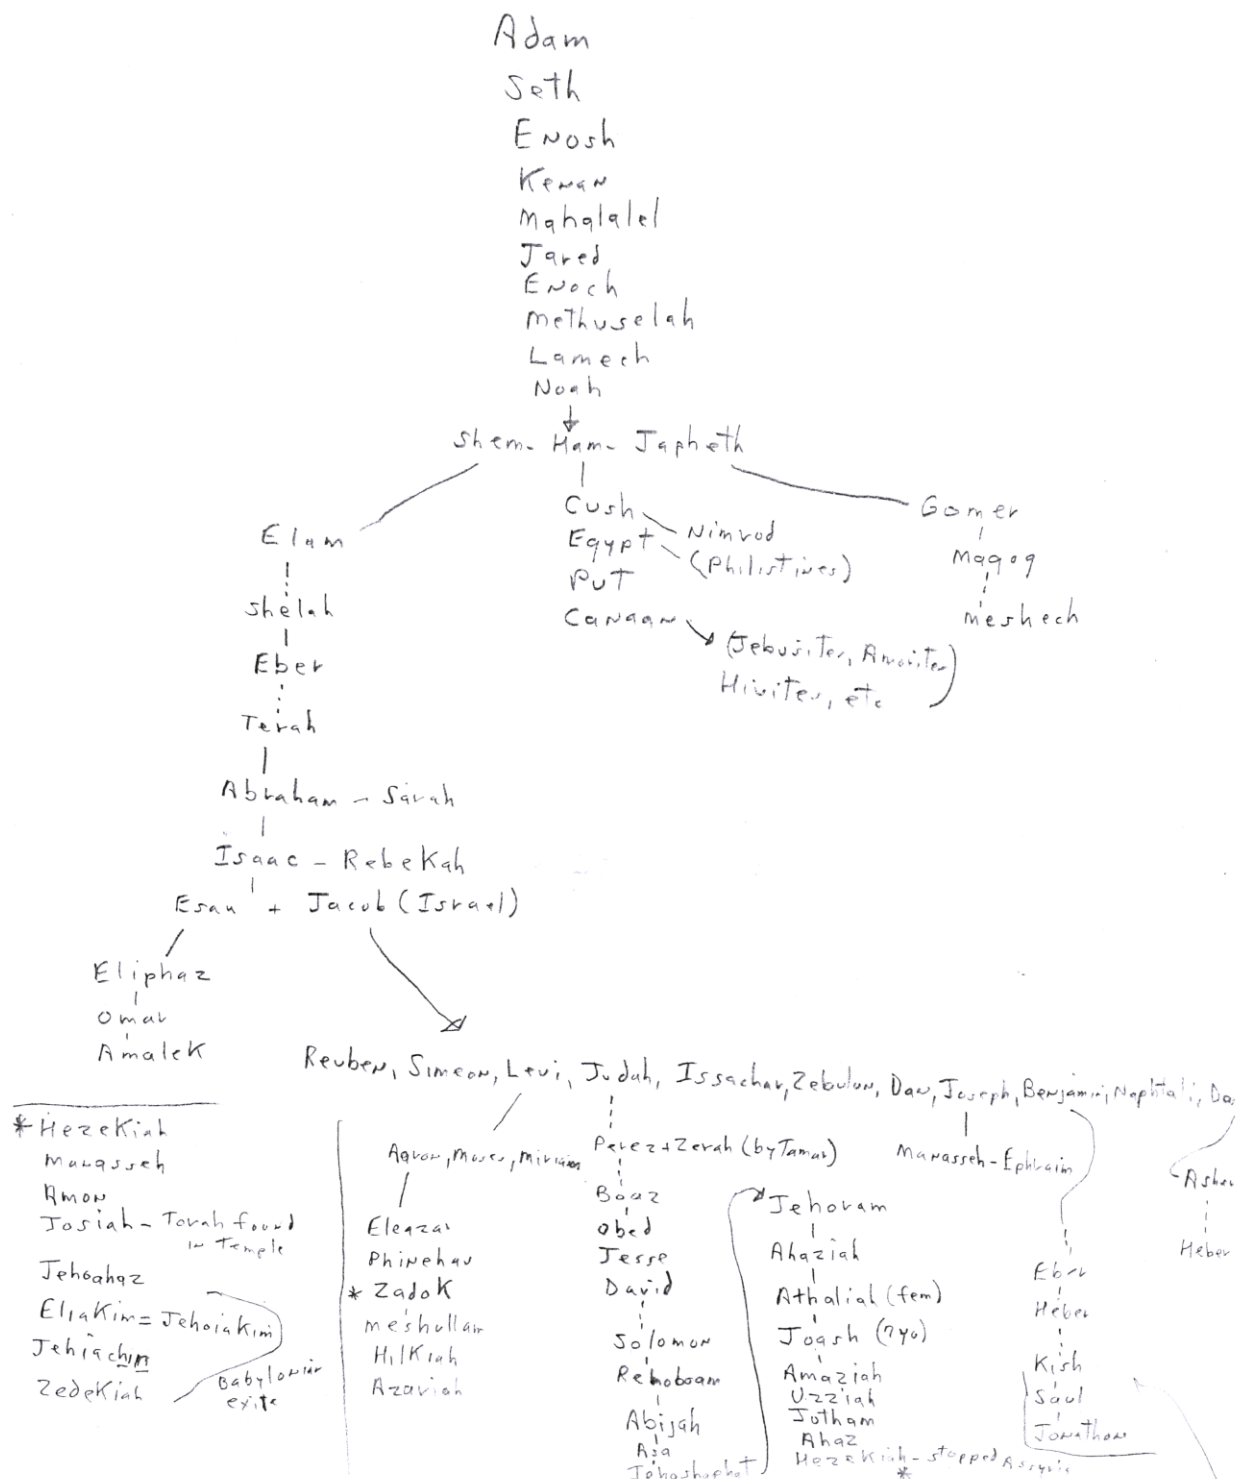 Adam
Seth
Enosh
Kenan
Mahalalel
Jared
Enoch
Methuselah
Lamech
Noah
Shem - Ham - Japheth
Elam
Shelah
Eber
Terah
Abraham - Sarah
Isaac - Rebekah
Esau + Jacob (Israel)
Cush
Egypt
Put
Canaan
Nimrod
(Philistines)
(Jebusites, Amorites
Hivites, etc)
Gomer
Magog
Meshech
Eliphaz
Omar
Amalek
Reuben, Simeon, Levi, Judah, Issachar, Zebulun, Dan, Joseph, Benjamin, Naphtali,
* Hezekiah
Manasseh
Amon
Josiah - Torah found
in Temple
Jehoahaz
Eliakim = Jehoiakim
Jehiachin
Zedekiah
Babylonian
exile
Aaron, Moses, Miriam
Eleazar
Phinehas
* Zadok
Meshullam
Hilkiah
Azariah
Perez + Zerah (by Tamar)
Boaz
Obed
Jesse
David
Solomon
Rehoboam
Abijah
Asa
Jehoshaphat
Jehoram
Ahaziah
Athaliah (fem)
Joash (7yo)
Amaziah
Uzziah
Jotham
Ahaz
Hezekiah - stopped Assyria
*
Manasseh - Ephraim
Eber
Heber
Kish
Saul
Jonathon
Asher
Heber